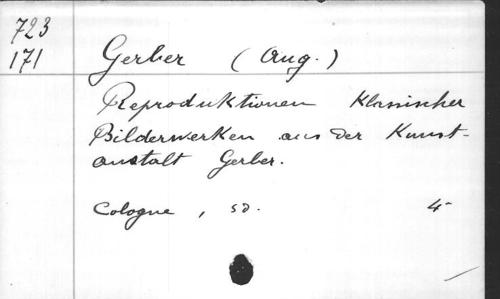 723
171
Gerber (Aug.)
Reproduktionen Klassischer
Bilderwerken aus der Kunst-
anstalt Gerber.
Cologne, sd. 4-